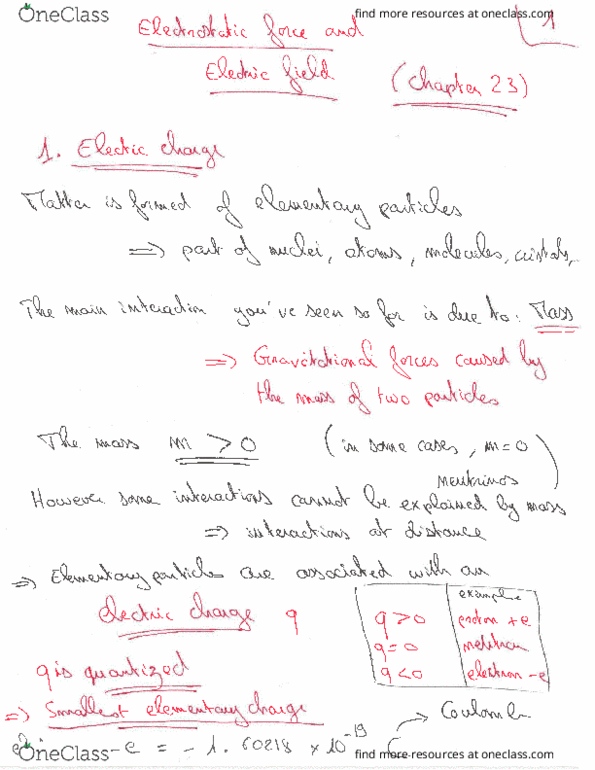 OneClass
find more resources at oneclass.com
1
Electrostatic force and
Electric field
(Chapter 23)
1. Electric charge
Matter is formed of elementary particles
=> part of nuclei, atoms, molecules, cristals,
The main interaction you've seen so far is due to: Mass
=> Gravitational forces caused by
the mass of two particles
The mass m > 0 (in some cases, m=0
neutrinos)
However some interactions cannot be explained by mass
=> interactions at distance
=> Elementary particles are associated with an
electric charge q
example
q>0 proton +e
q=0 neutron
q<0 electron -e
q is quantized
=> Smallest elementary charge
-> Coulomb
-e = - 1.60218 x 10^-19 C
OneClass
find more resources at oneclass.com